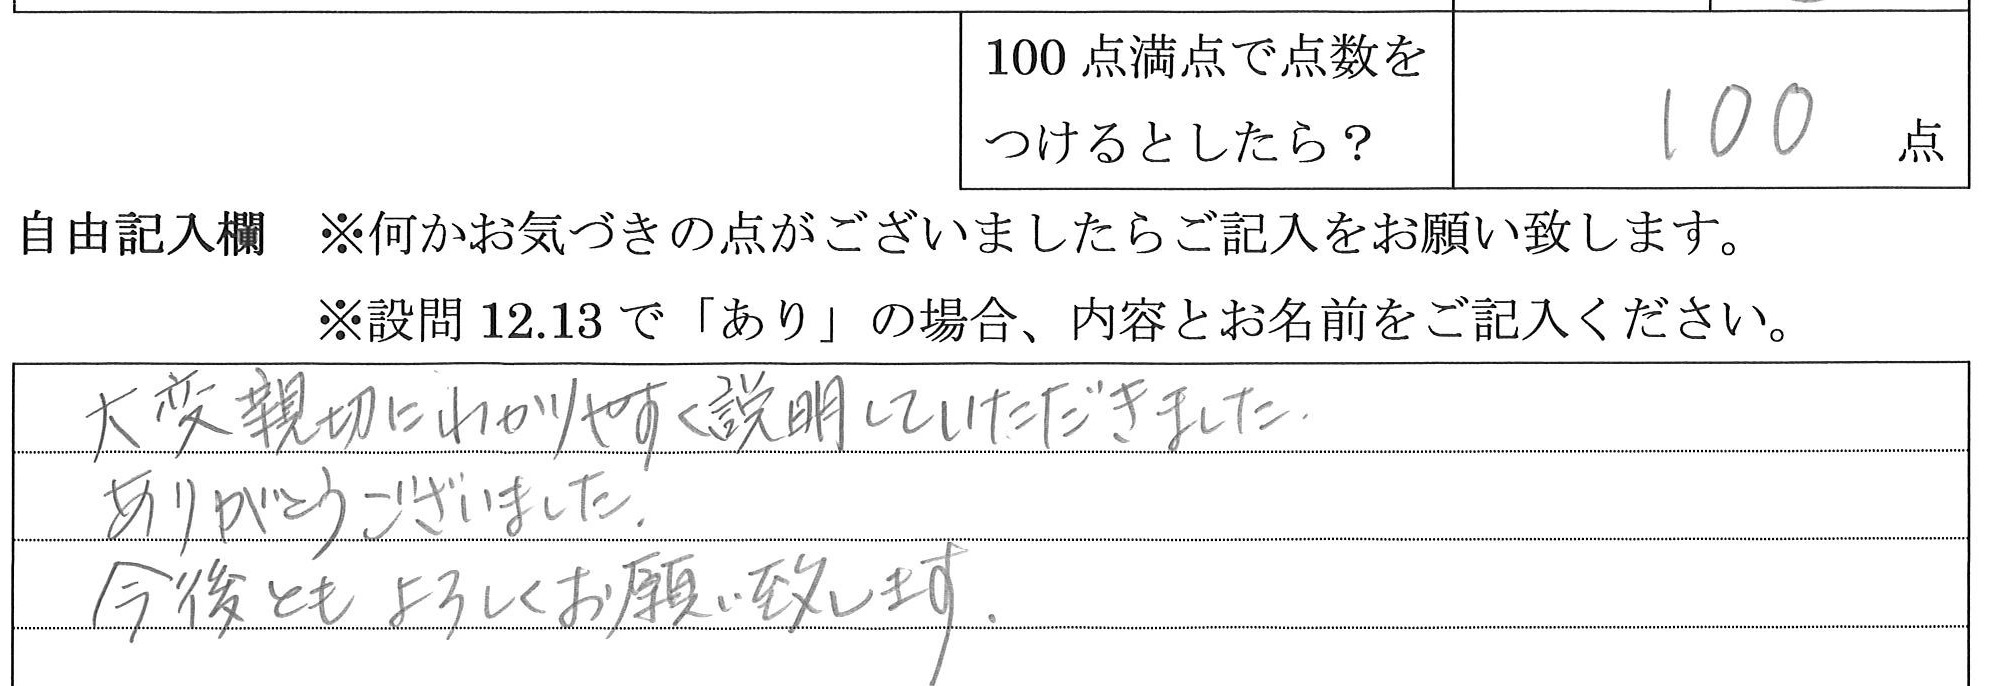 100点満点で点数を
つけるとしたら？
100 点
自由記入欄 ※何かお気づきの点がございましたらご記入をお願い致します。
※設問 12.13 で「あり」の場合、内容とお名前をご記入ください。
大変親切にわかりやすく説明していただきました.
ありがとうございました.
今後ともよろしくお願い致します.